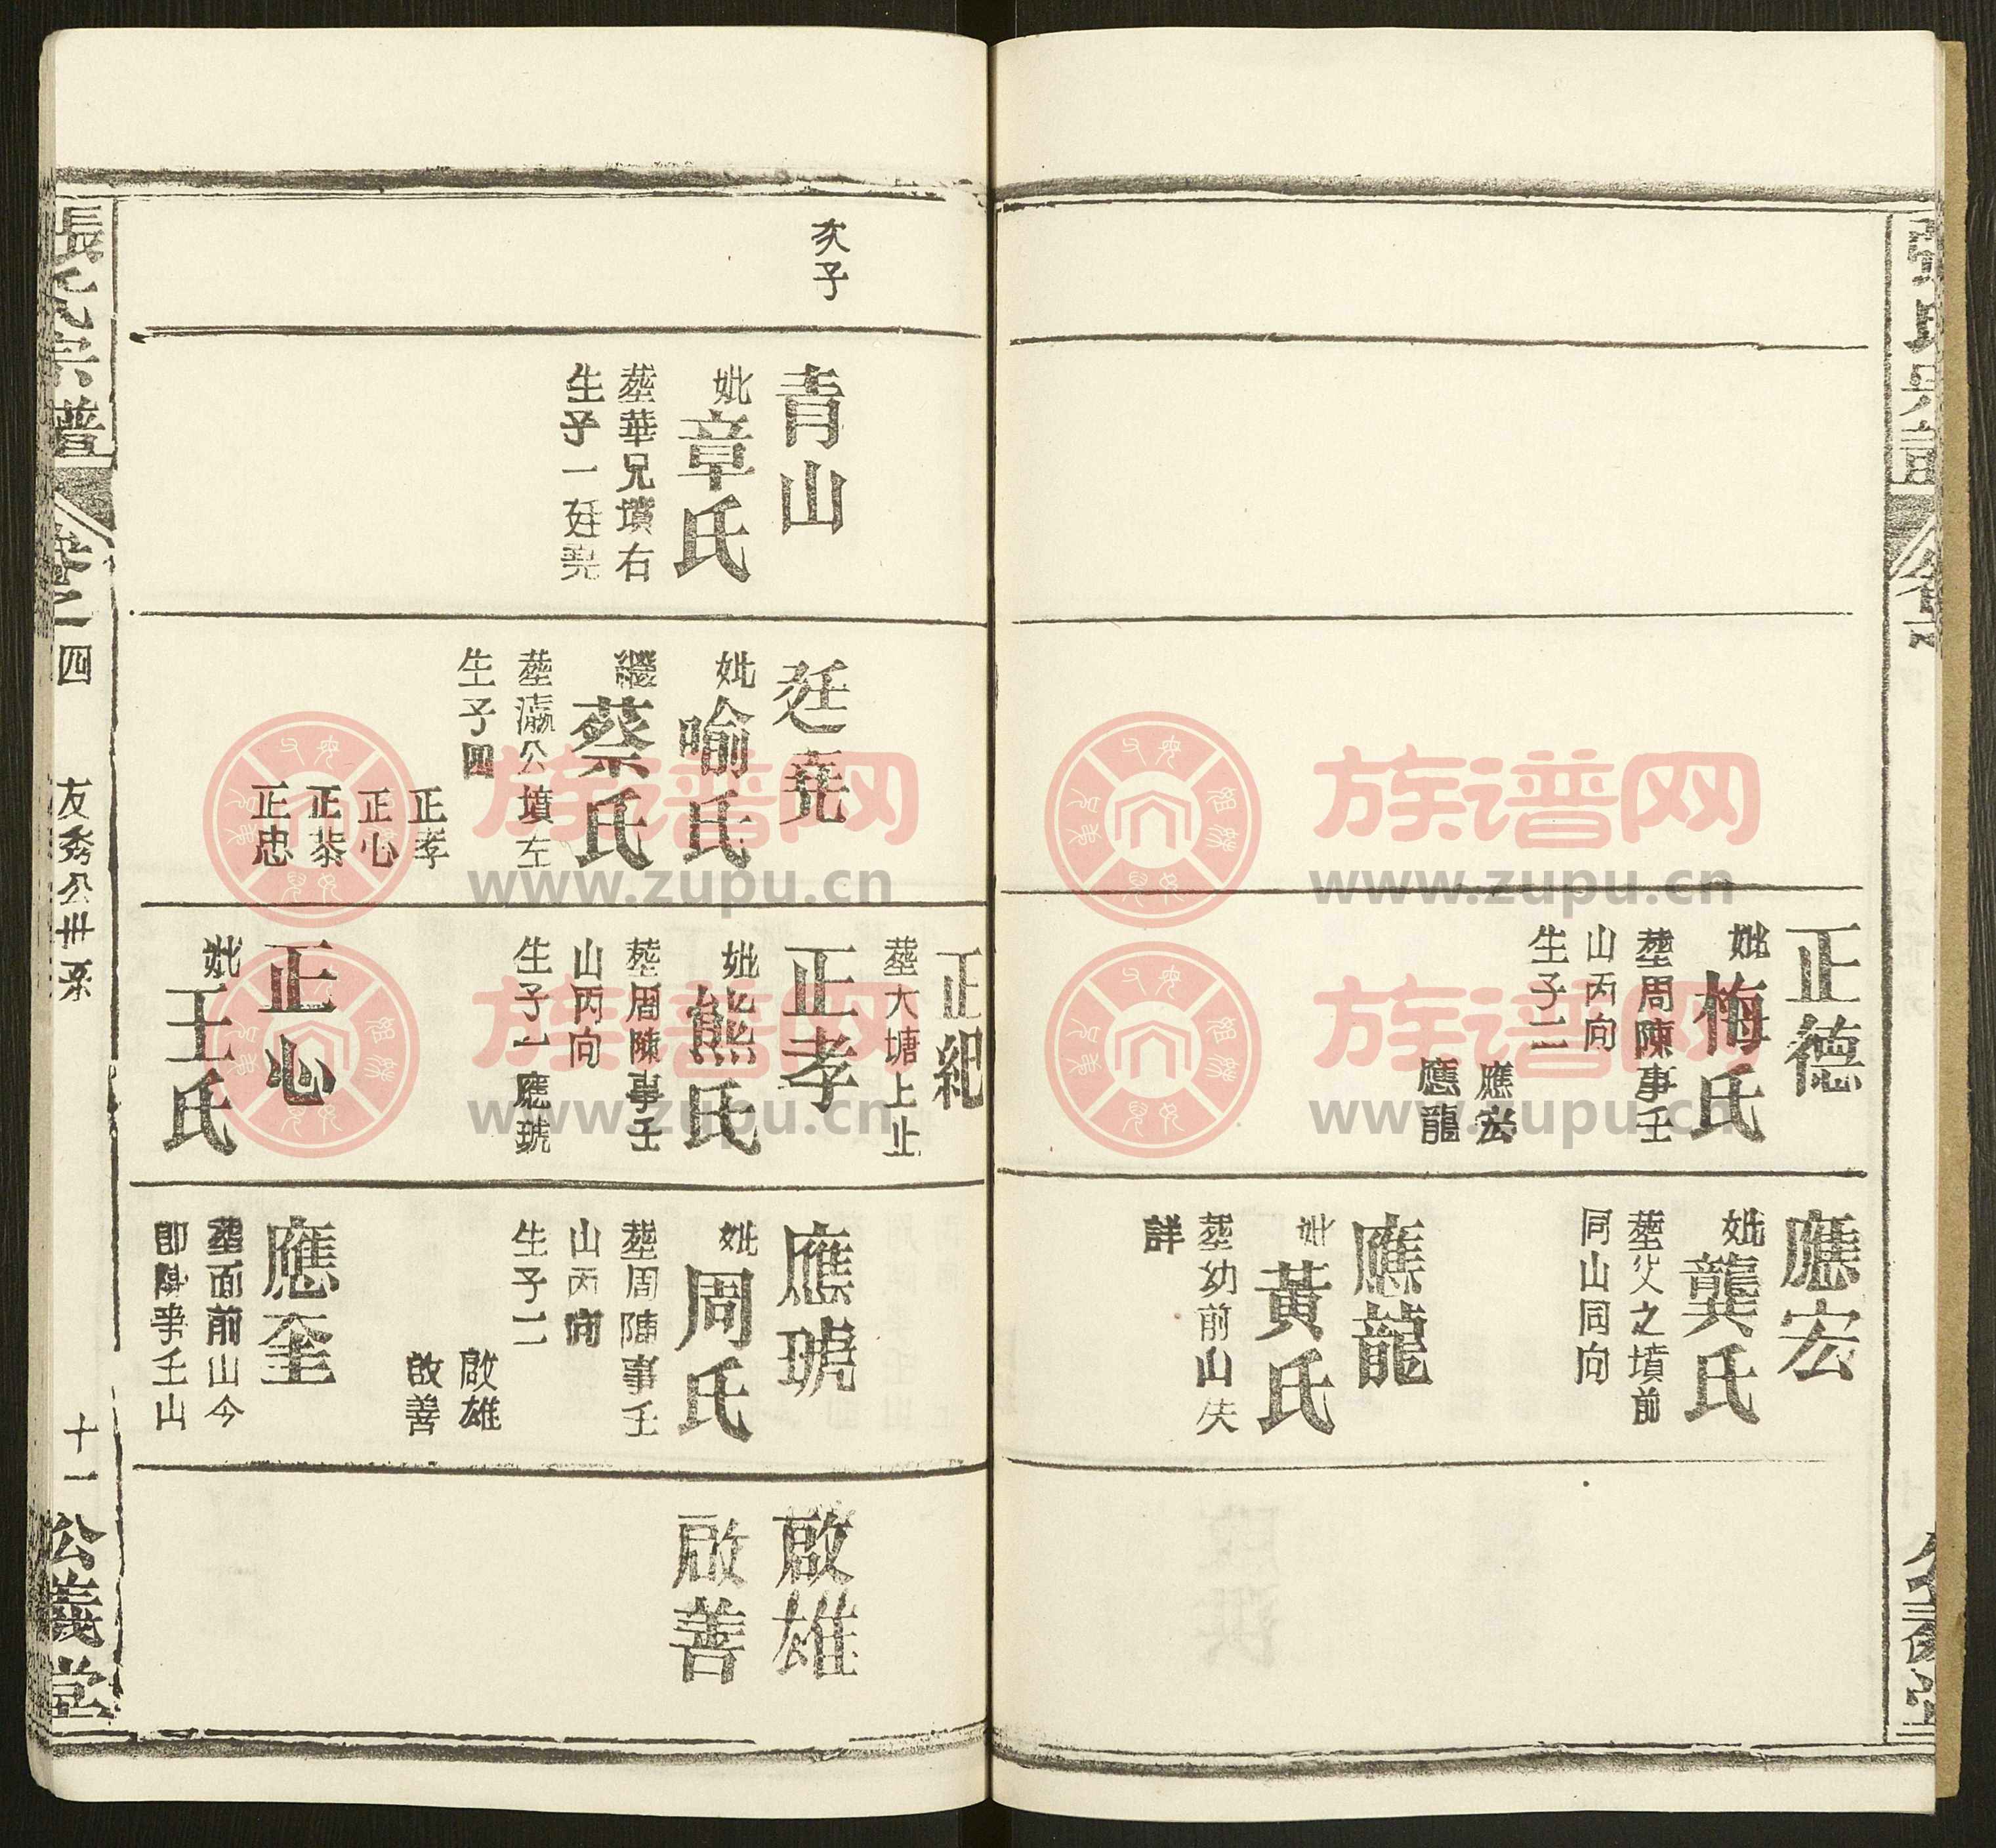 正德
妣梅氏
塟周陳事壬
山丙向
生子二
應宏
應龍
應宏
妣龔氏
塟父之墳前
同山同向
應龍
妣黃氏
塟幼前山失
詳
次子
青山
妣章氏
塟華兄墳右
生子一廷堯
廷堯
妣喻氏
繼蔡氏
塟瀛公墳左
生子四
正孝
正心
正恭
正忠
正紀
塟大塘上止
正孝
妣熊氏
塟周陳事壬
山丙向
生子一應琥
正心
妣王氏
應琥
妣周氏
塟周陳事壬
山丙向
生子二
啟雄
啟善
應奎
塟面前山今
卽陳事壬山
啟雄
啟善
張氏宗譜
卷之四
友秀公世系
十一
公義堂
族谱网
www.zupu.cn
族谱网
www.zupu.cn
族谱网
www.zupu.cn
族谱网
www.zupu.cn